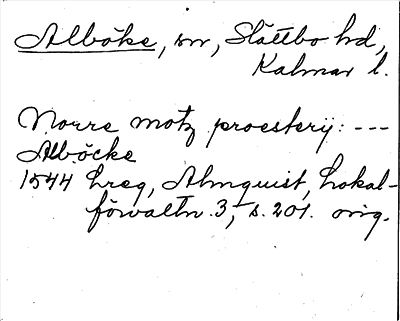 Alböke, sn, Slättbo hd,
Kalmar l.
Norre motz proesterij: ---
Alböcke
1544 Lreg, Almquist, Lokal-
förvaltn. 3, s. 201. orig.